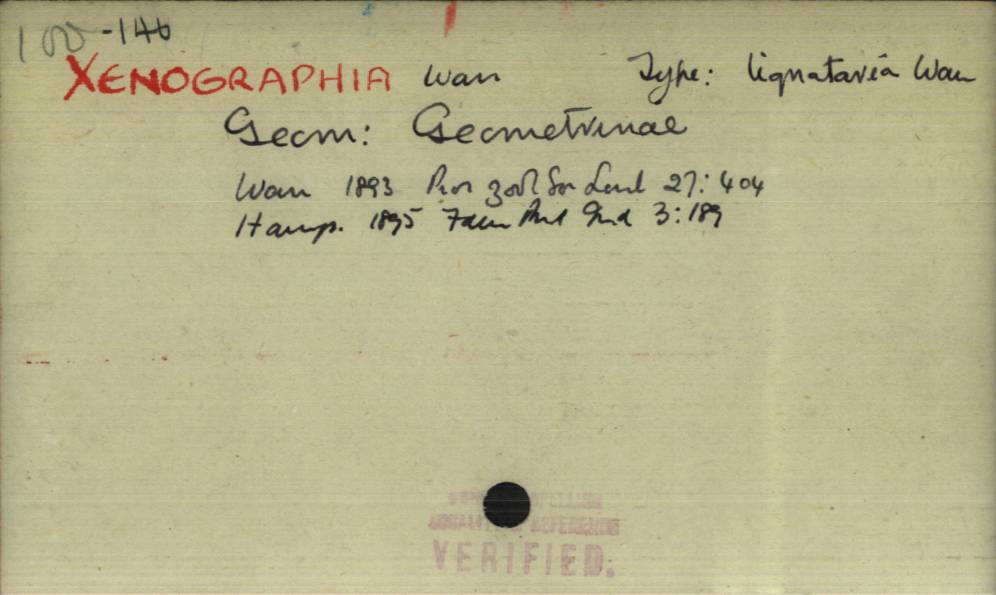 100-146
XENOGRAPHIA Warr Type: lignataria Warr
Geom: Geometrinae
Warr 1893 Proc zool Soc Lond 27: 404
Hamps. 1895 Faun Ind 3: 189
SPELLING
LOCALITY REFERENCE
VERIFIED.